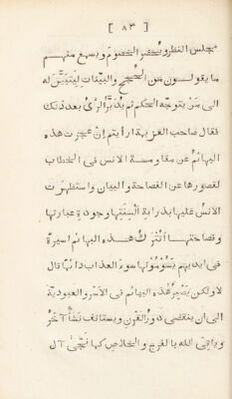 [ ٨٣ ]
مجلس النظر ونحضر الخصوم ويسمع منهم
ما يقولون من الحجج والبيّنات ليتبيّن له
الى من يتوجّه الحكم ثم يدبّر الرأى بعد ذلك
فقال صاحب العزيمة ارأيتم ان عجزت هذه
البهائم عن مقاومة الانس فى الخطاب
لقصورها عن الفصاحة والبيان واستظهرت
الانس عليها بذرابة السنتها وجودة عبارتها
وفصاحتها أتترك هذه البهائم اسيرة
فى ايديهم يسومونها سوء العذاب دائما قال
لا ولكن يصبر هذه البهائم فى الاسر والعبودية
الى ان ينقضى دور القرن ويستانف نشأ آخر
وياتى الله بالفرج والخلاص كما نجّى آل